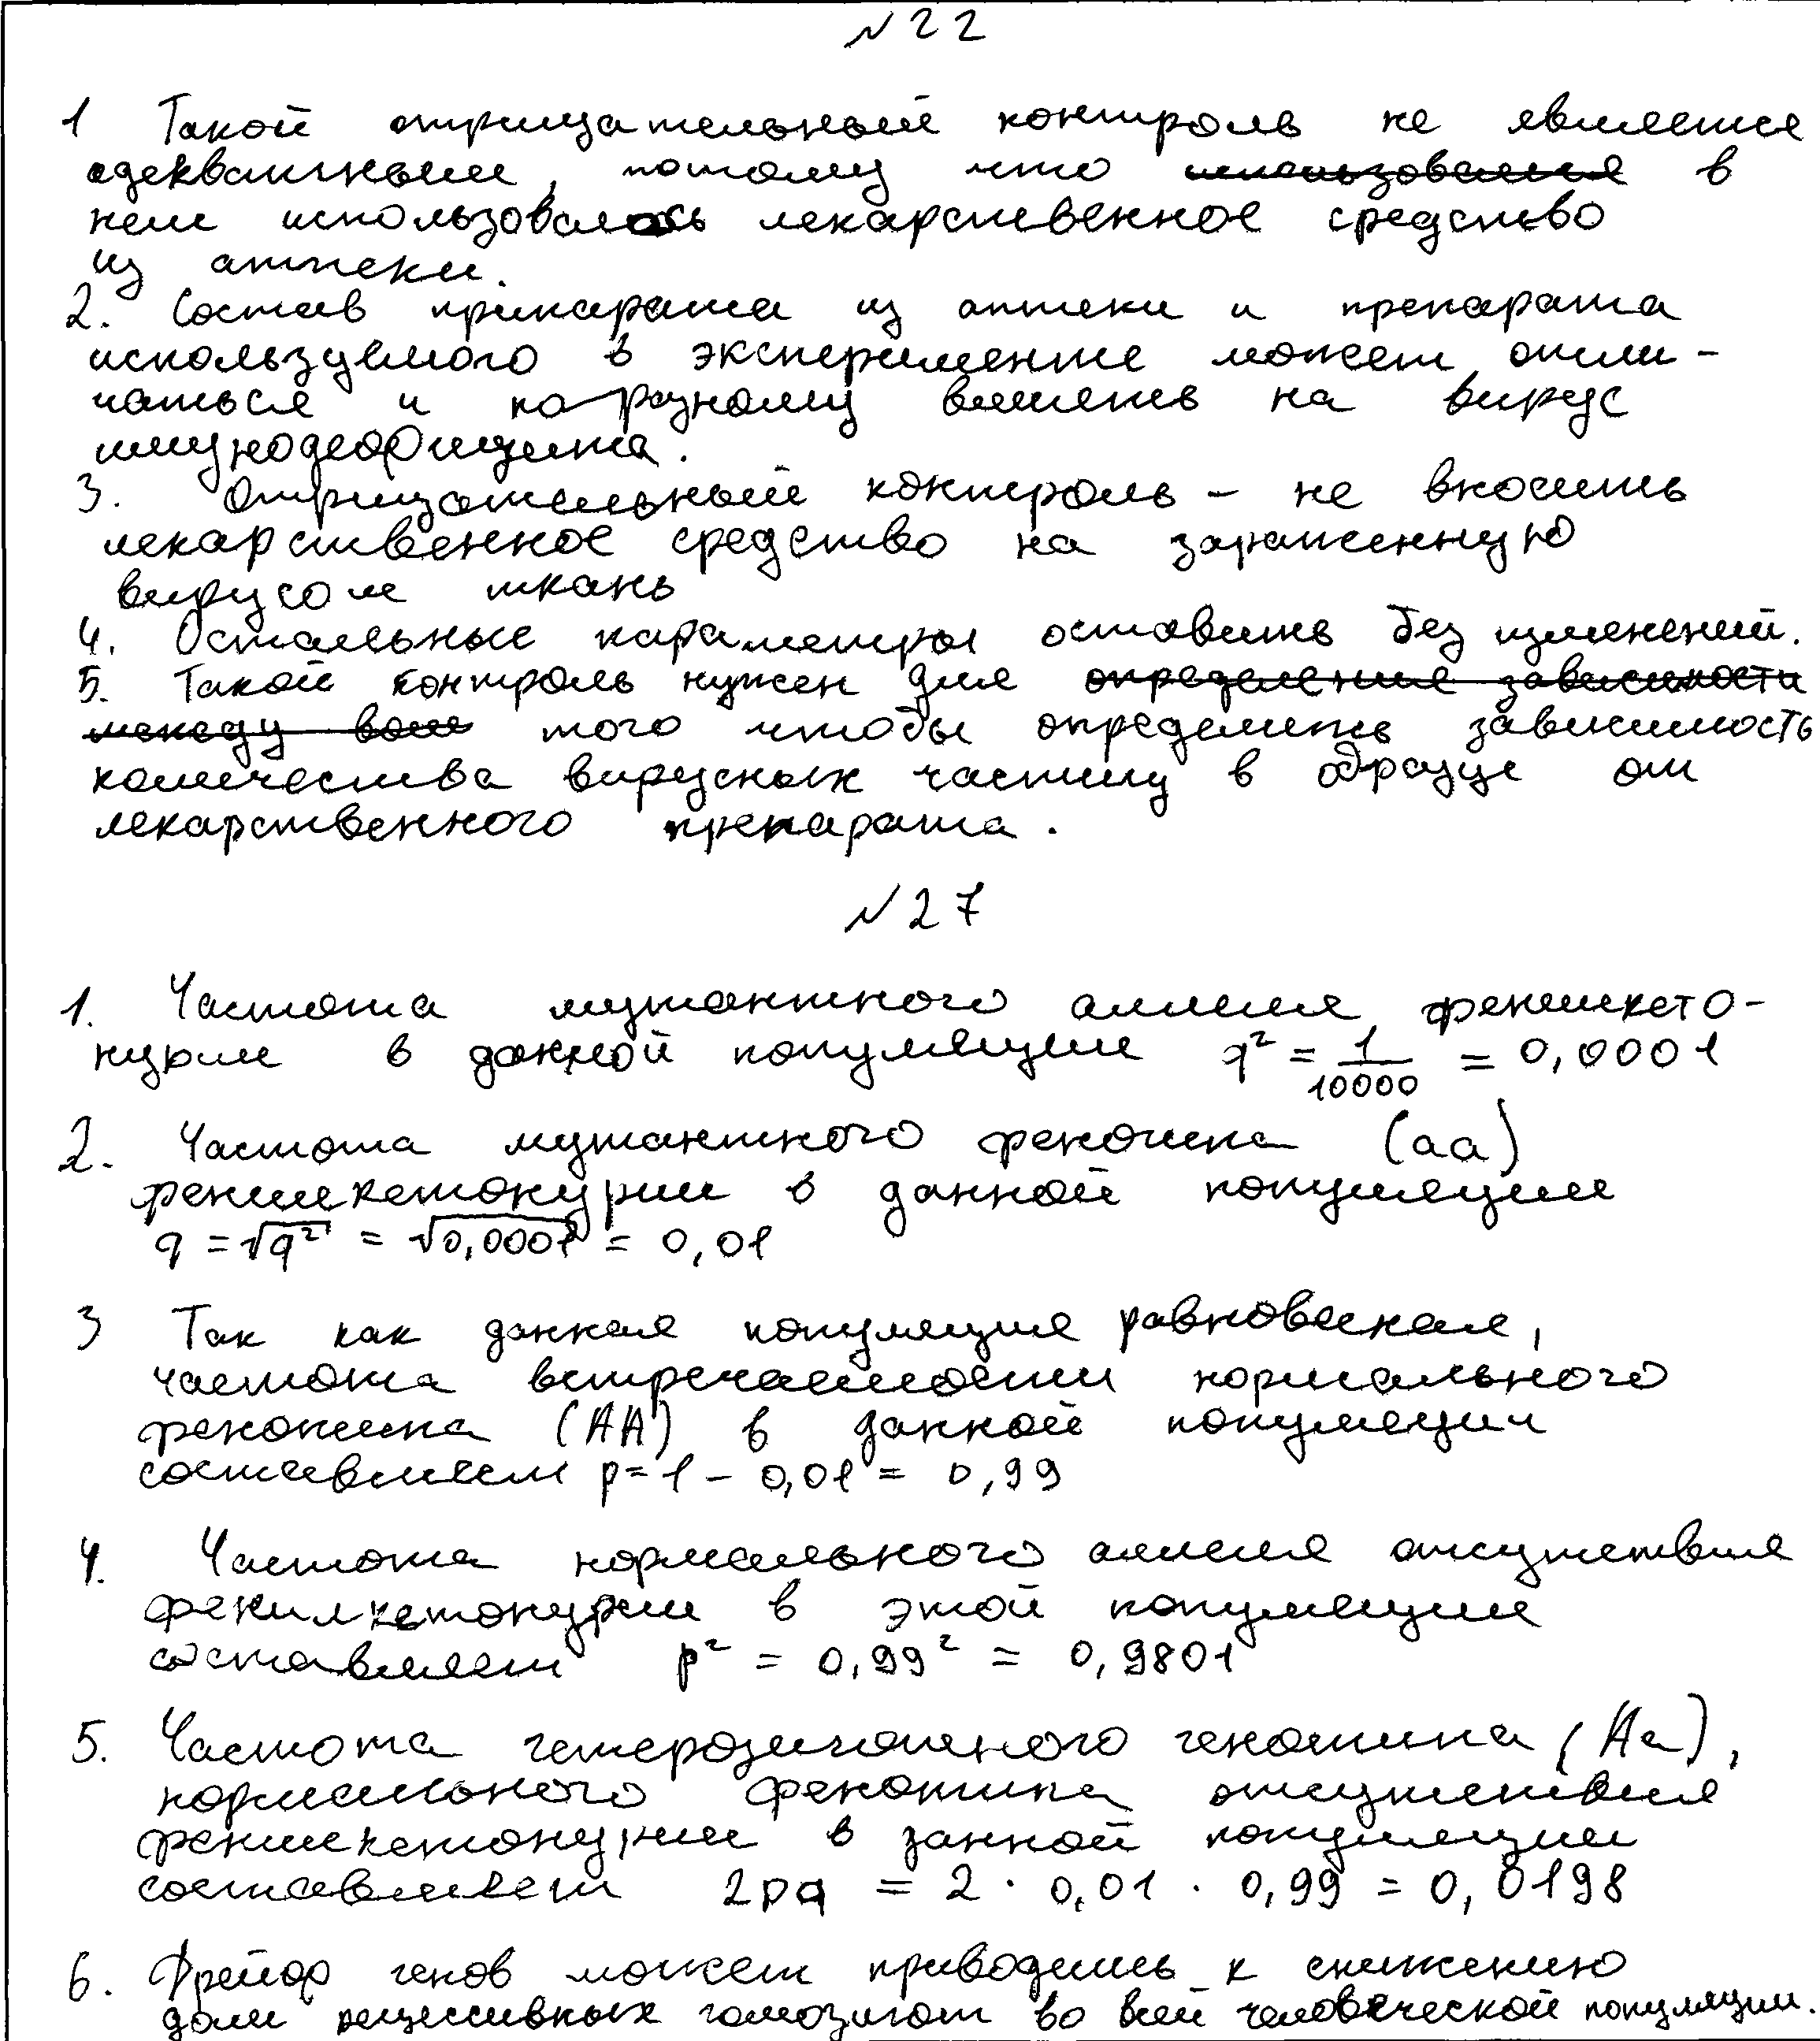 №22
1 Такой отрицательный контроль не является
адекватным, потому что использовался в
нем использовалось лекарственное средство
из аптеки.
2. Состав припарата из аптеки и препарата
используемого в эксперименте может отли-
чаться и по-разному влиять на вирус
имунодефицита.
3. Отрицательный контроль - не вносить
лекарственное средство на зараженную
вирусом ткань
4. Остальные параметры оставить без изменений.
5. Такой контроль нужен для определения зависимости
между того чтобы определить зависимость
количества вирусных частиц в образце от
лекарственного препарата.
№27
1. Частота мутантного аллеля фенилкето-
нурии в данной популяции q² = 1/10000 = 0,0001
2. Частота мутантного фенотипа (аа)
фенилкетонурии в данной популяции
q = √q² = √0,0001 = 0,01
3 Так как данная популяция равновесная,
частота встречаемости нормального
фенотипа (АА) в данной популяции
составляет p = 1 - 0,01 = 0,99
4. Частота нормального аллеля отсутствия
фенилкетонурии в этой популяции
составляет p² = 0,99² = 0,9801
5. Частота гетерозиготного генотипа (Аа),
нормального фенотипа отсутствия
фенилкетонурии в занной популяции
составляет 2pq = 2 · 0,01 · 0,99 = 0,0198
6. Дрейф генов может приводить к снижению
доли рецессивных гомозигот во всей человеческой популяции.